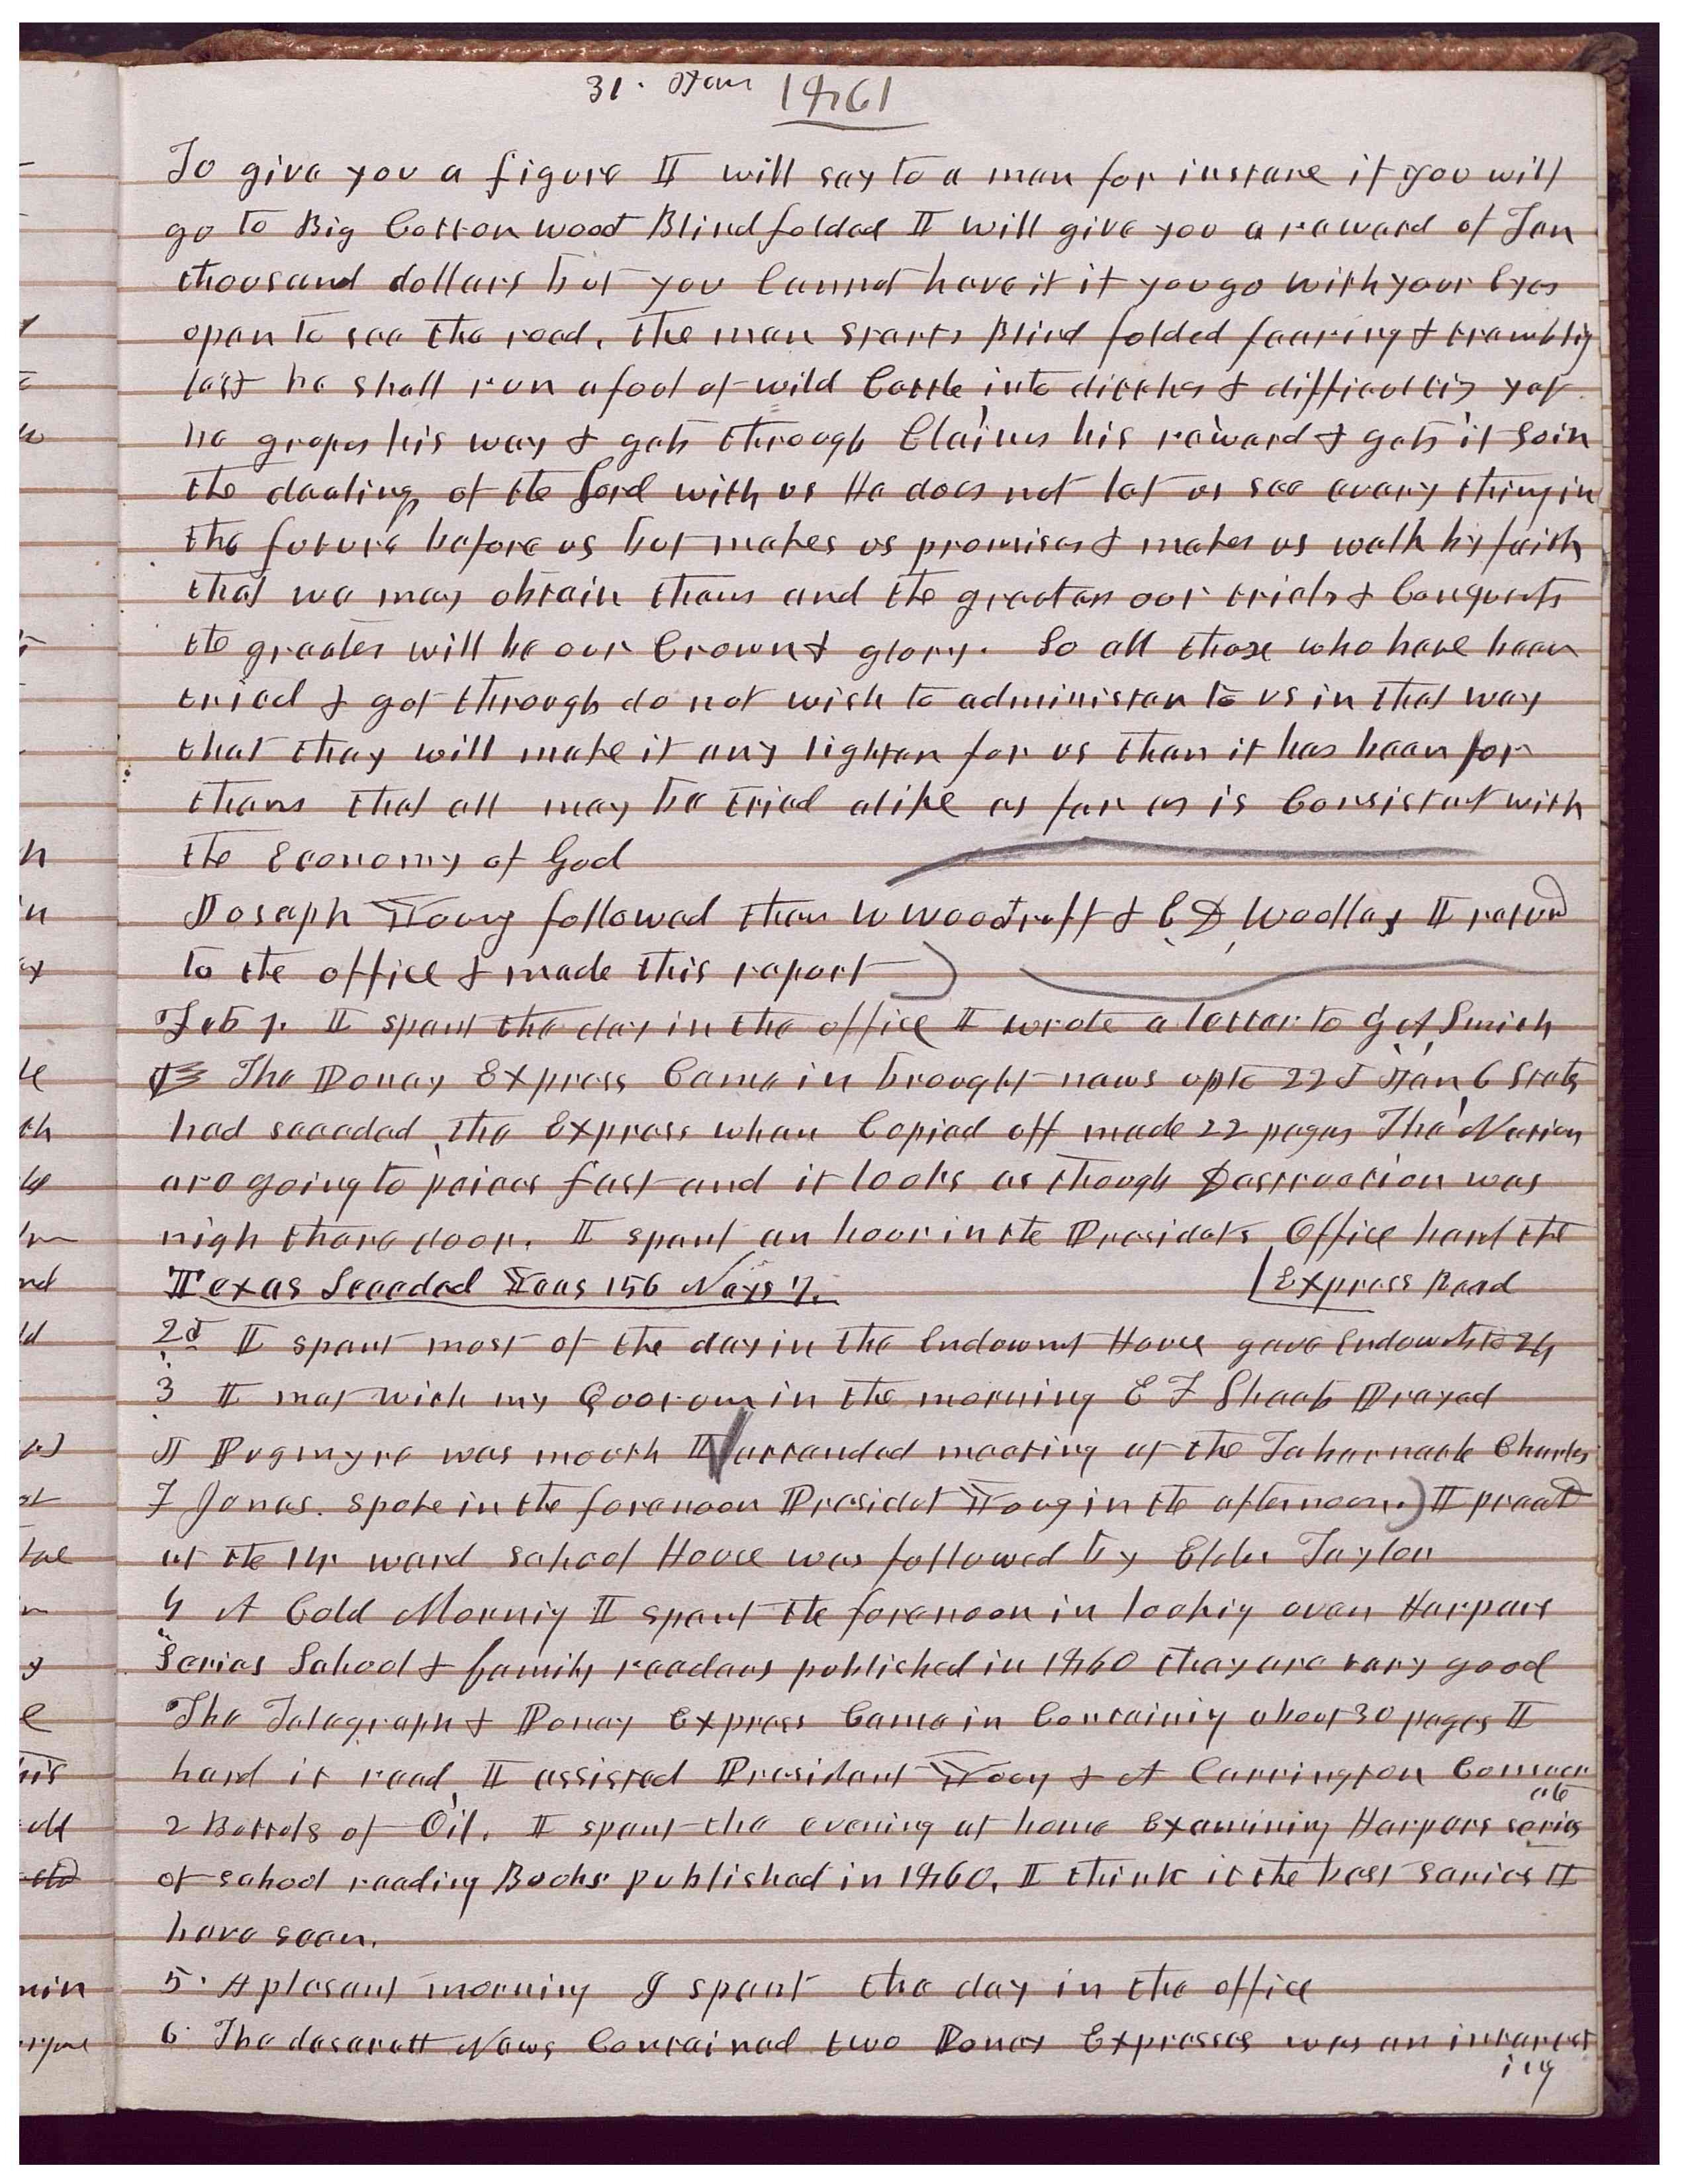 31. Jan 1861
To give you a figure I will say to a man for instane if you will
go to Big Cottonwood Blindfolded I will give you a reward of Ten
thousand dollars but you Cannot have it if you go with your Eyes
open to see the road. the man starts Blind folded fearing & trembling
lest he shall run afool of wild Cattle into ditches & difficulties yet
he gropes his way & gets through Claims his reward & gets it So in
the dealings of the Lord with us He does not let us see every thing in
the future before us but makes us promises & makes us walk by faith
that we may obtain them and the greater our trials & Conquests
the greater will be our Crown & glory. So all those who have been
tried & got through do not wish to administer to us in that way
that they will make it any lighter for us than it has been for
them that all may be tried alike as far as is Consistent with
the Economy of God
Joseph Young followed then W Woodruff & E D Woolley I returd
to the office & made this report
Feb 1. I spent the day in the office I wrote a letter to G. A. Smith
The Poney Express Came in brought news up to 22d Jan, 6 States
had seceeded, the Express when Copied off made 22 pages The Nation
are going to peices fast and it looks as though Destruction was
nigh there door. I spent an hour in the Presidets Office hard the
Texas Seceded Yeas 156 Nays 7. Express Read
2d I spent most of the day in the Endowmt House gave Endowmts to 24
3 I met with my Quorum in the morning E F Sheets Prayed
J Pugmyre was mouth I attended meeting at the Tabernacle Charles
F Jones. spoke in the forenoon Presidet Young in the afternoon.) I preacd
at the 14 ward school House was followed by Elder Taylor
4 A Cold Mornig I spent the forenoon in lookig over Harpers
Series School & family readers published in 1860 they are very good
The Telegraph & Poney Express Came in Containig about 30 pages I
hard it read, I assisted President Young & A Carrington Consecr
ate
2 Bottels of Oil. I spent the evening at home Examining Harpers series
of school reading Books published in 1860. I think it the best series I
have seen.
5. A plesant morning I spent the day in the office
6. The desarett News Contained two Poney Expresses was an interest
ing